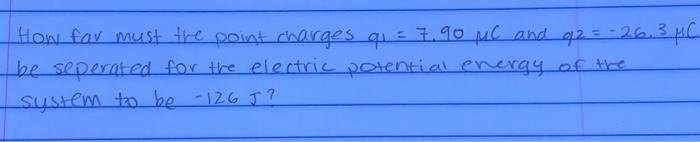 How far must the point charges q1 = 7.90 μC and q2 = -26.3 μC
be seperated for the electric potential energy of the
system to be -126 J?